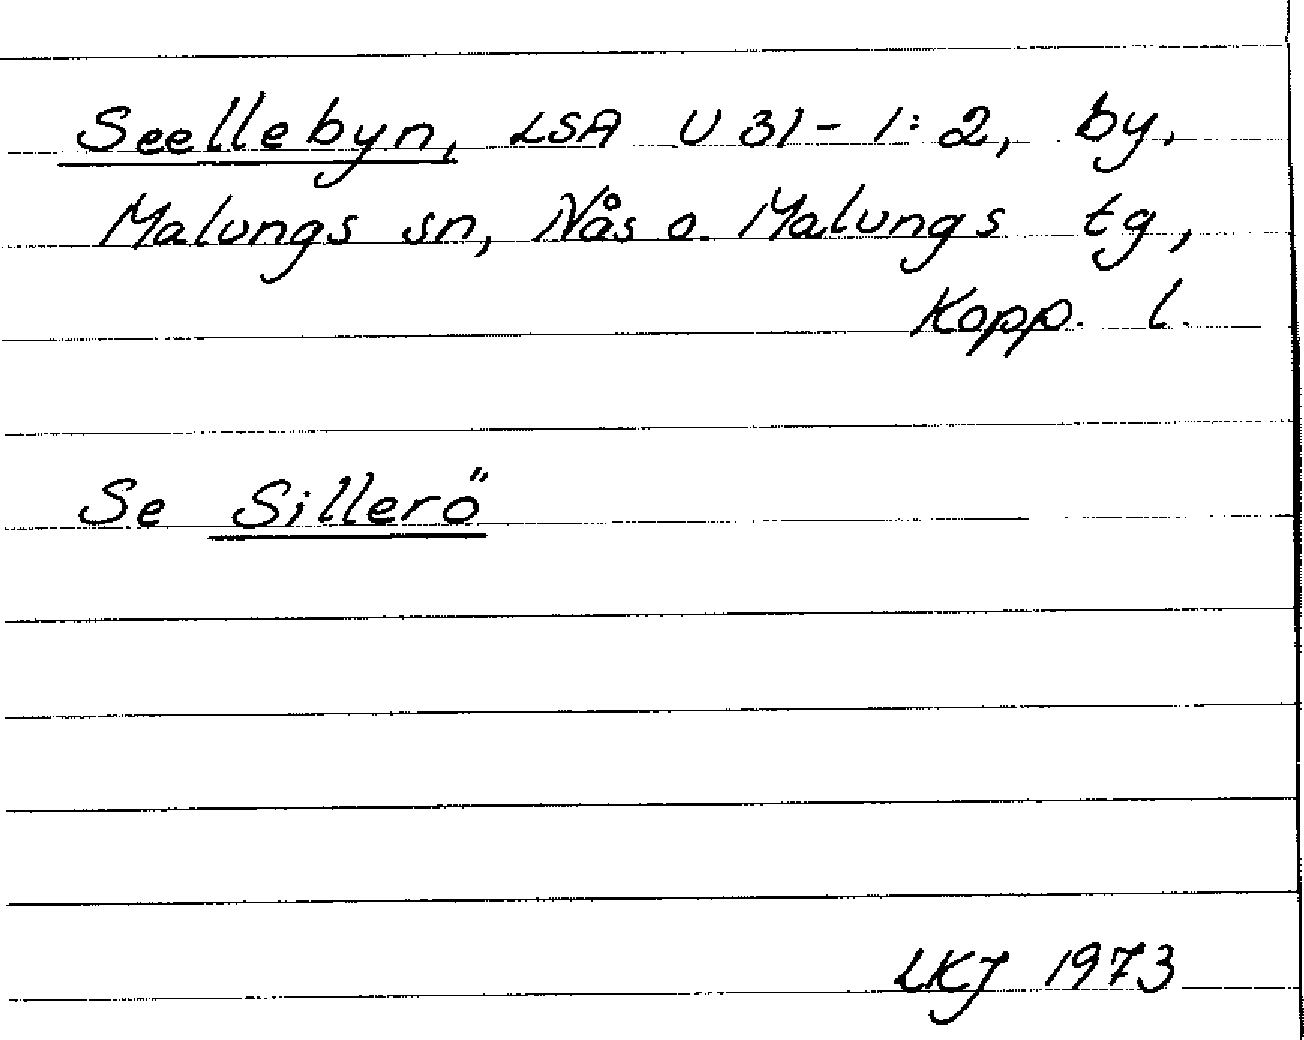 Seellebyn, LSA U 31-1:2, by,
Malungs sn, Nås o. Malungs tg,
Kopp. l.
Se Sillerö
LKJ 1973